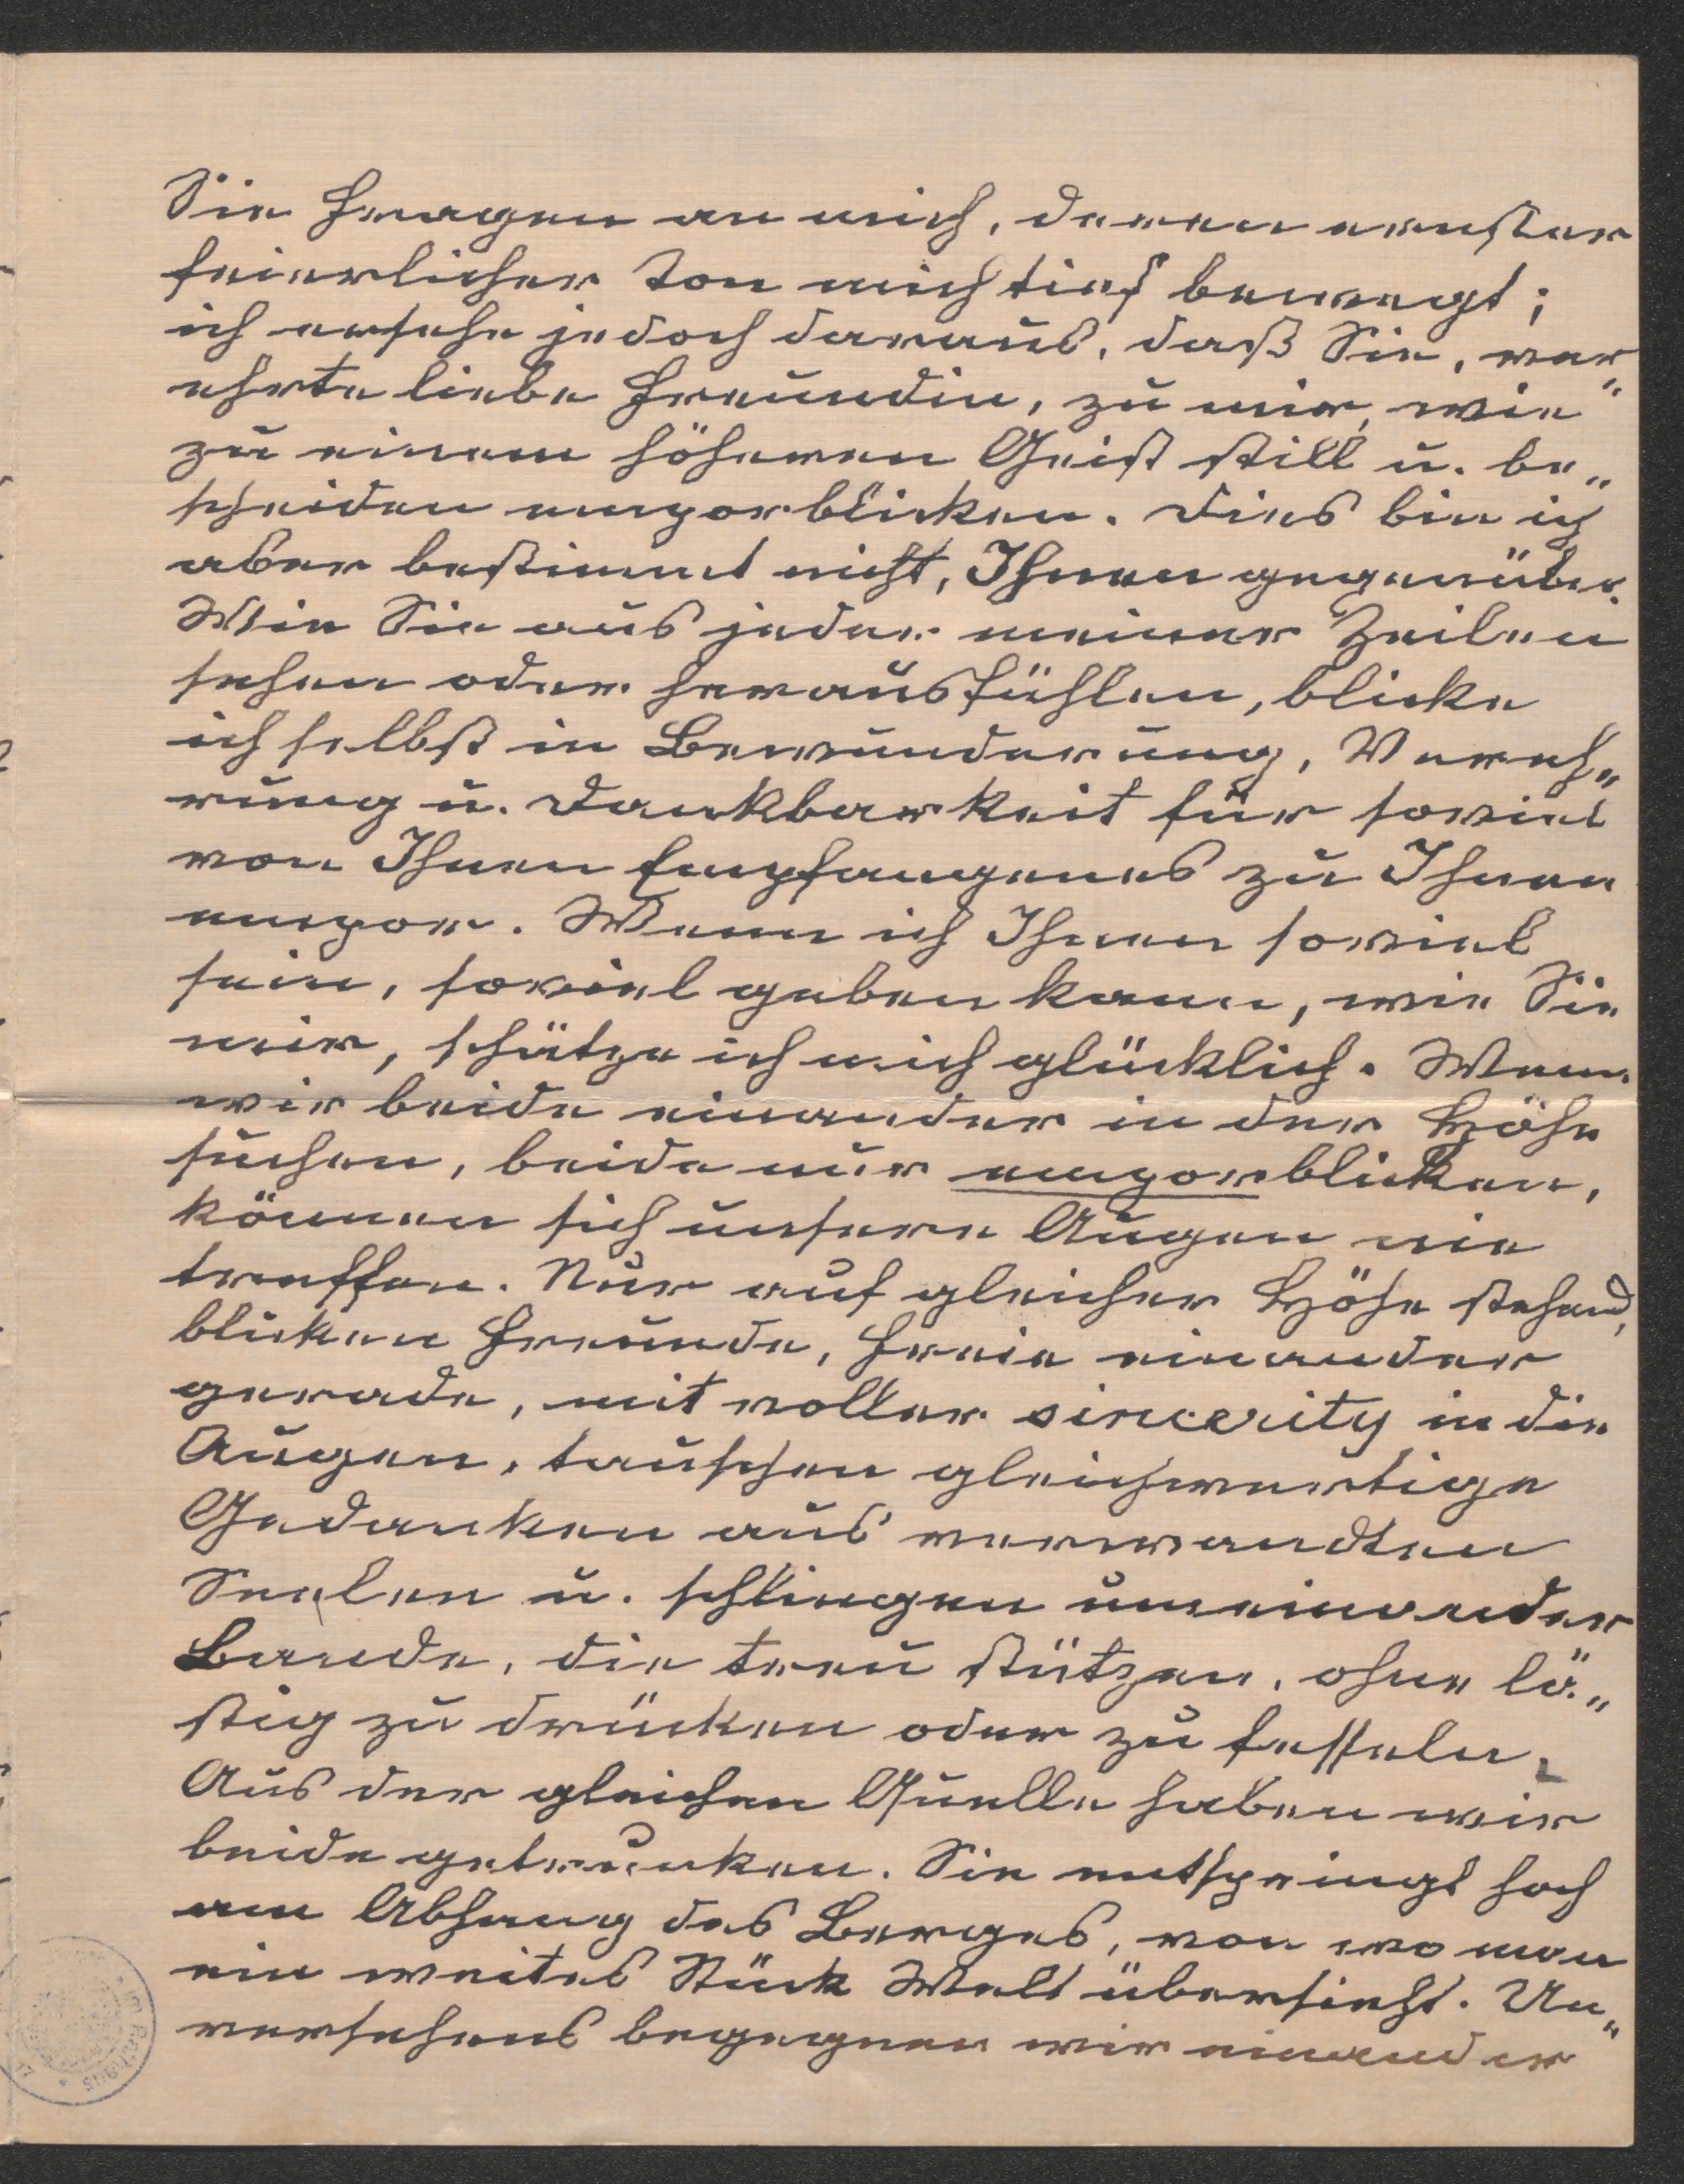 Sie Fragen an mich, deren ernster
feierlicher Ton mich tief bewegt;
ich ersehe jedoch daraus, daß Sie, ver„
ehrte liebe Freundin, zu mir, wie
zu einem höheren Geist still u. be„
scheiden emporblicken. Dies bin ich
aber bestimmt nicht, Ihnen gegenüber.
Wie Sie aus jeder meiner Zeilen
sehen oder herausfühlen, blicke
ich selbst in Bewunderung, Vereh„
rung u. Dankbarkeit für soviel
von Ihnen Empfangenes zu Ihnen
empor. Wenn ich Ihnen soviel
sein, soviel geben kann, wie Sie
mir, schätze ich mich glücklich. Wenn
wir beide einander in der Höhe
suchen, beide nur emporblicken,
können sich unsere Augen nie
treffen. Nur auf gleicher Höhe stehend,
blicken Freunde, Freie einander
gerade, mit voller sincerity in die
Augen, tauschen gleichwertige
Gedanken aus verwandten
Seelen u. schlingen umeinander
Bande, die treu stützen, ohne lä„
stig zu drücken oder zu fesseln.
Aus der gleichen Quelle haben wir
beide getrunken. Sie entspringt hoch
am Abhang des Berges, von wo man
ein weites Stück Welt übersieht. Un„
versehens begegnen wir einander